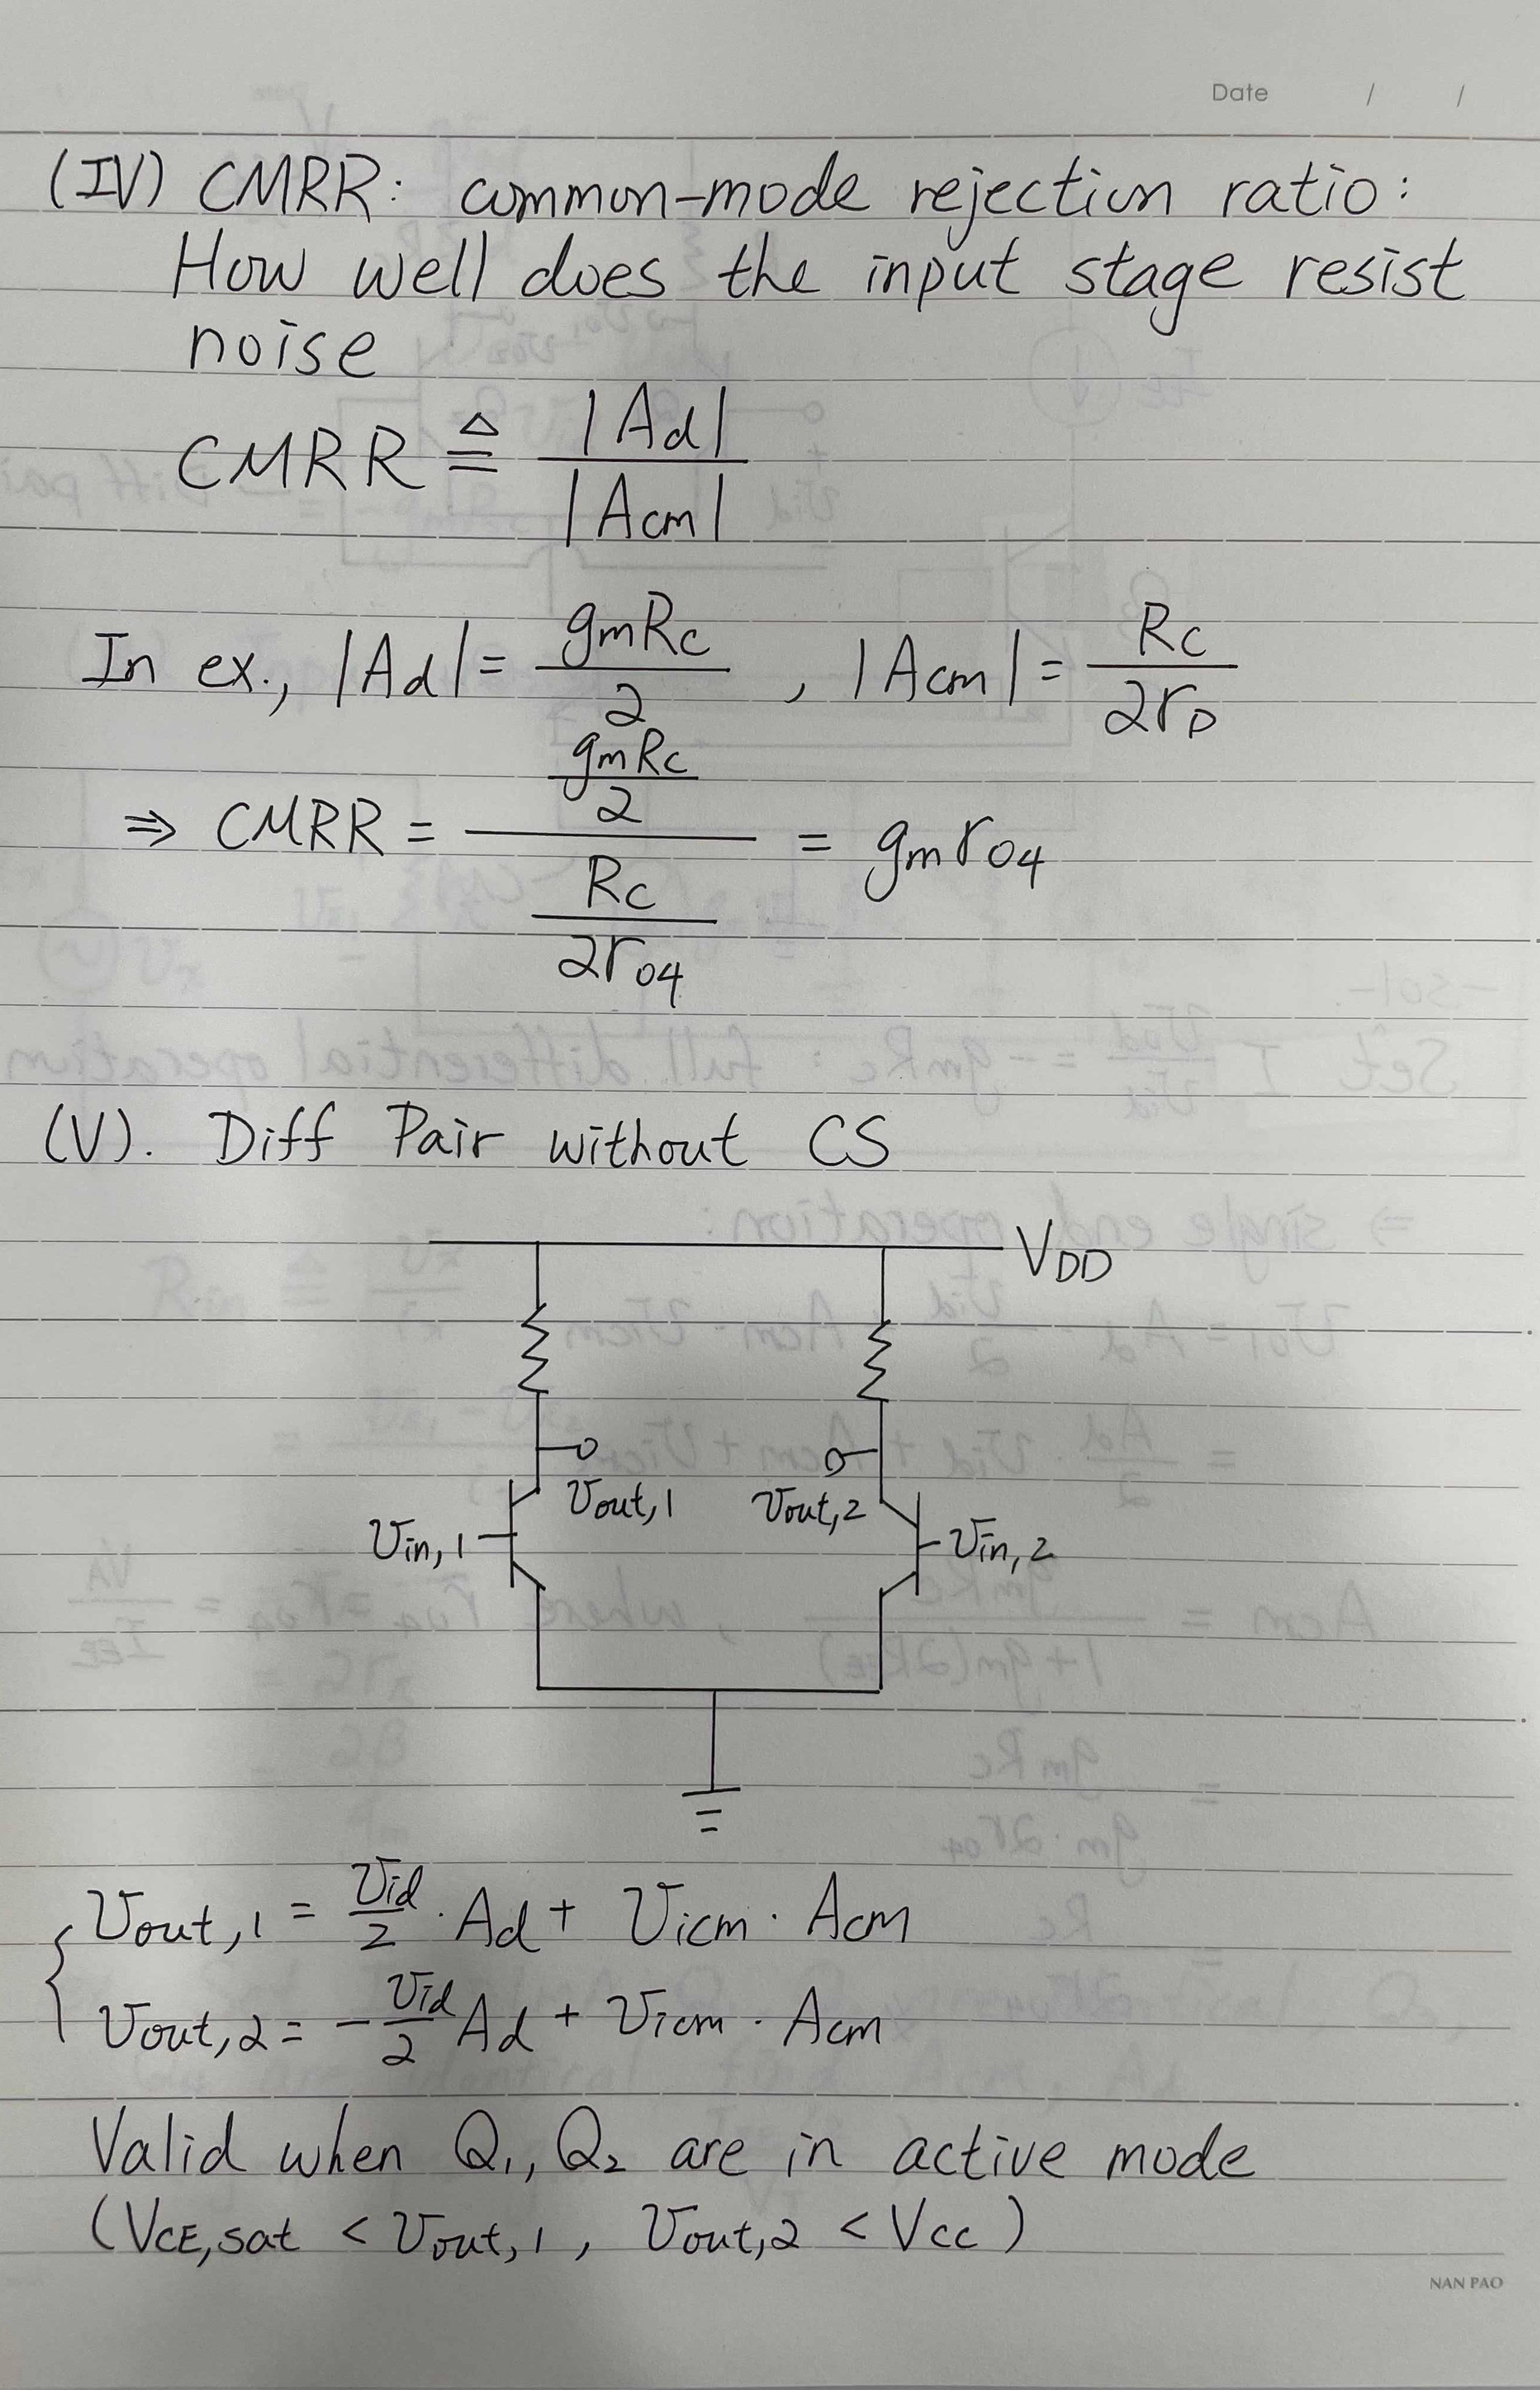 Date / /
(IV) CMRR: common-mode rejection ratio:
How well does the input stage resist
noise
CMRR ≜ |Ad| / |Acm|
In ex., |Ad| = gmRc / 2 , |Acm| = Rc / 2ro
⇒ CMRR = (gmRc / 2) / (Rc / 2ro4) = gmro4
(V). Diff Pair without CS
VDD
Vout,1 Vout,2
Vin,1 Vin,2
Vout,1 = Vid/2 · Ad + Vicm · Acm
Vout,2 = - Vid/2 Ad + Vicm · Acm
Valid when Q1, Q2 are in active mode
(VCE,sat < Vout,1 , Vout,2 < Vcc)
NAN PAO